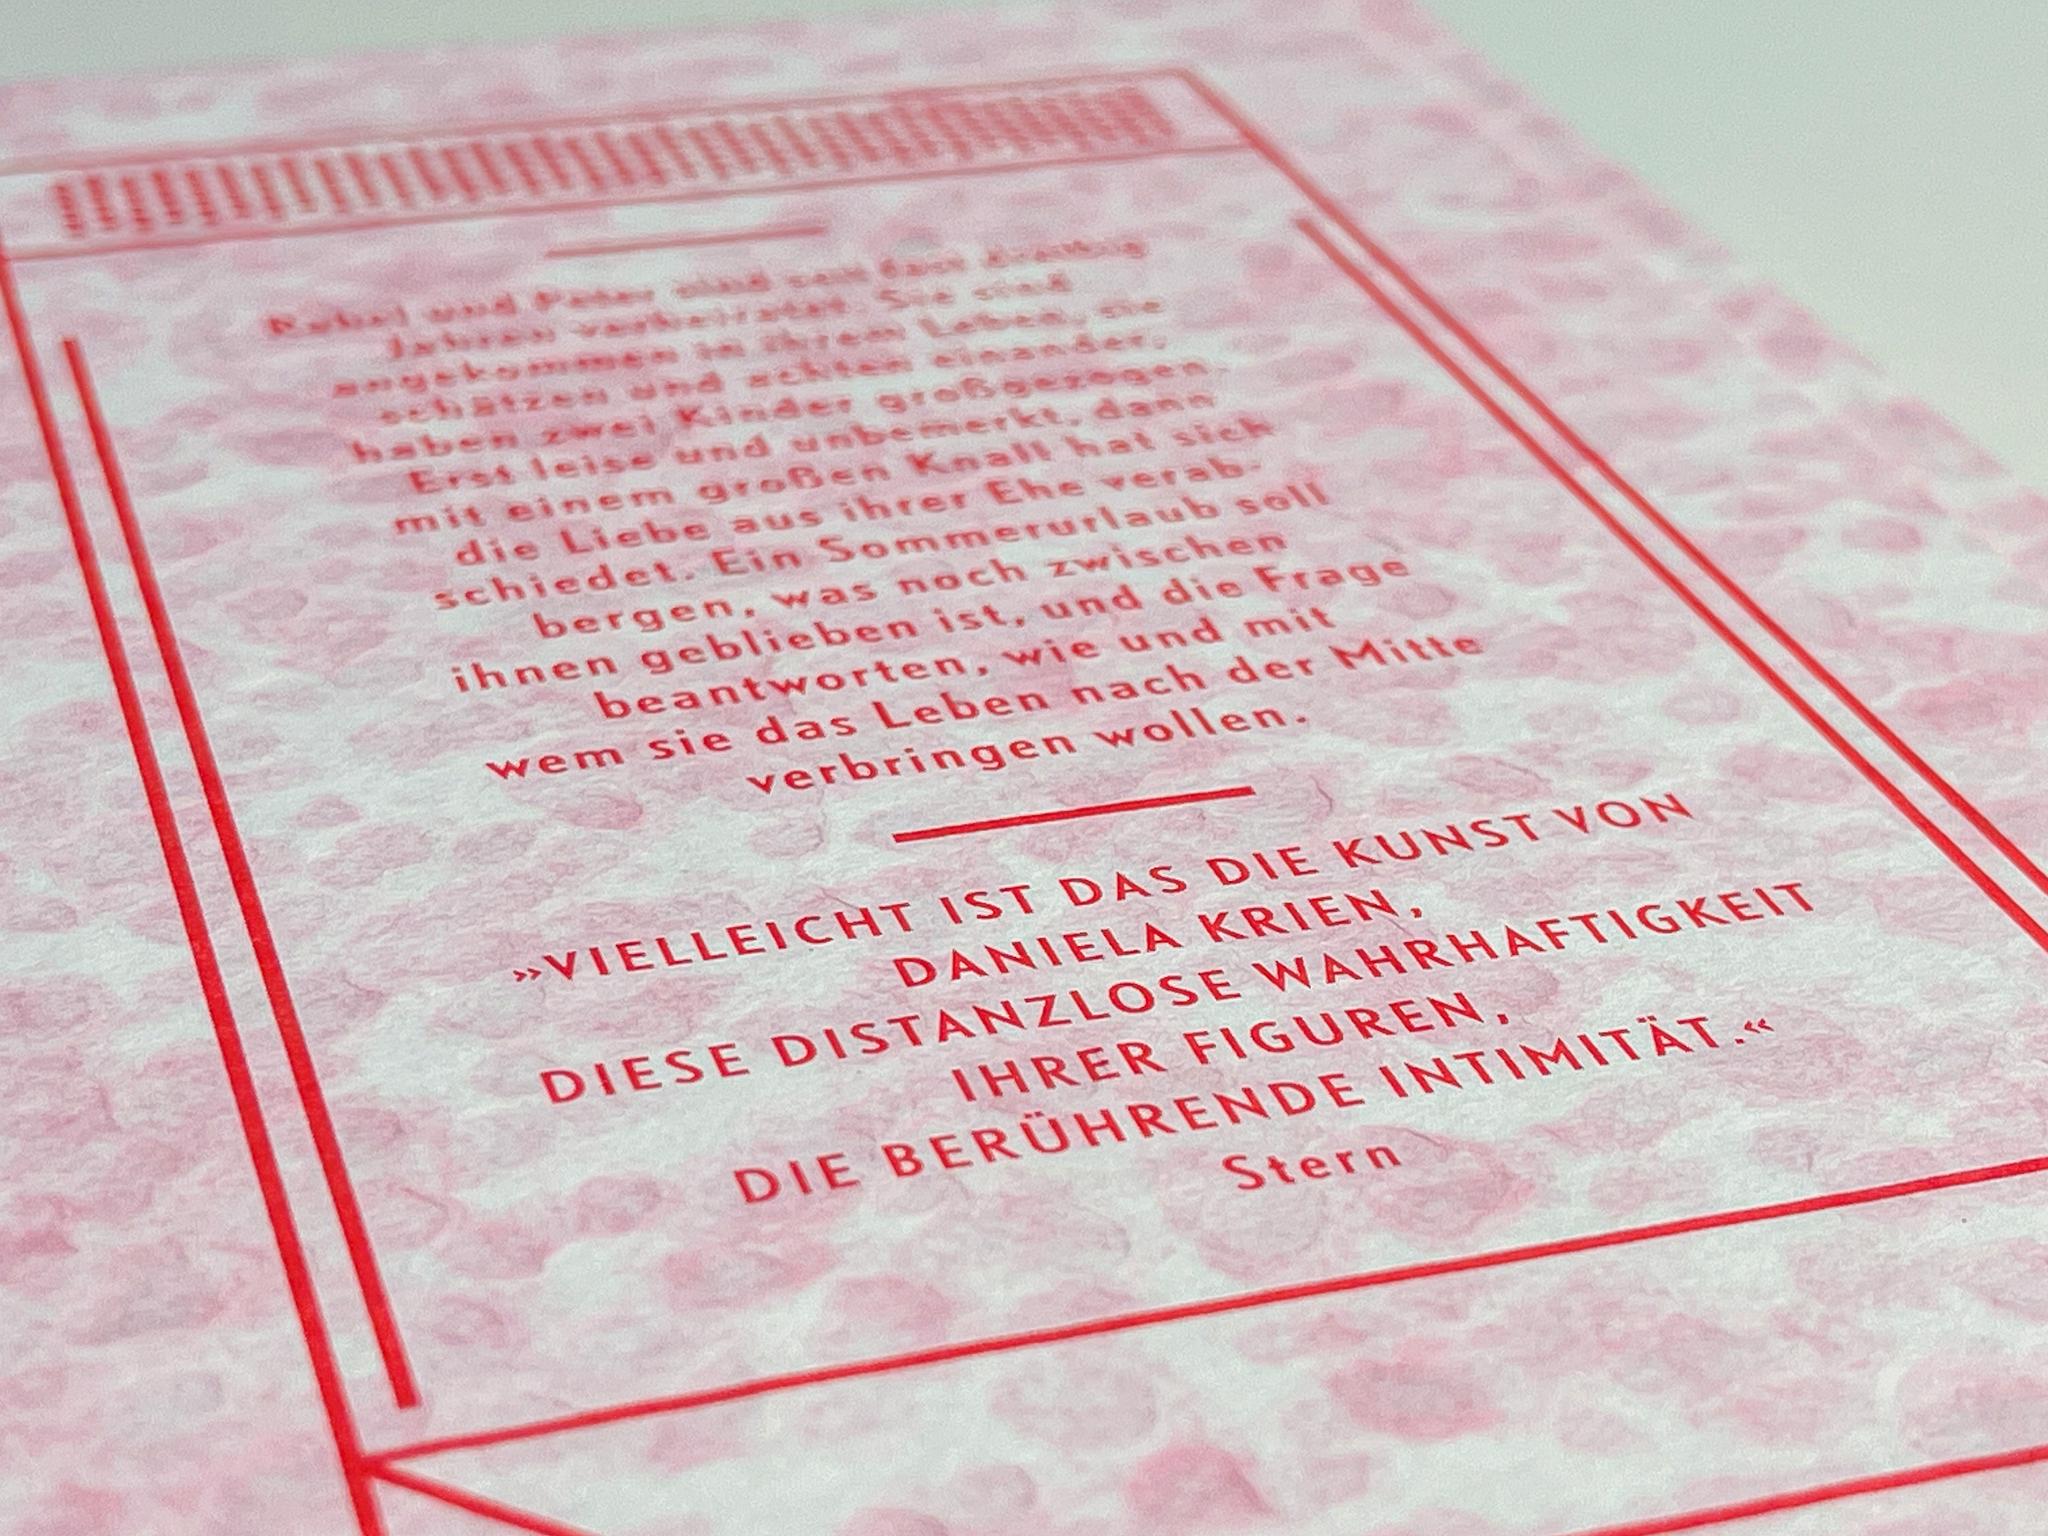 Rahel und Peter sind seit fast dreißig
Jahren verheiratet. Sie sind
angekommen in ihrem Leben, sie
schätzen und achten einander,
haben zwei Kinder großgezogen.
Erst leise und unbemerkt, dann
mit einem großen Knall hat sich
die Liebe aus ihrer Ehe verab-
schiedet. Ein Sommerurlaub soll
bergen, was noch zwischen
ihnen geblieben ist, und die Frage
beantworten, wie und mit
wem sie das Leben nach der Mitte
verbringen wollen.
»VIELLEICHT IST DAS DIE KUNST VON
DANIELA KRIEN,
DIESE DISTANZLOSE WAHRHAFTIGKEIT
IHRER FIGUREN,
DIE BERÜHRENDE INTIMITÄT.«
Stern